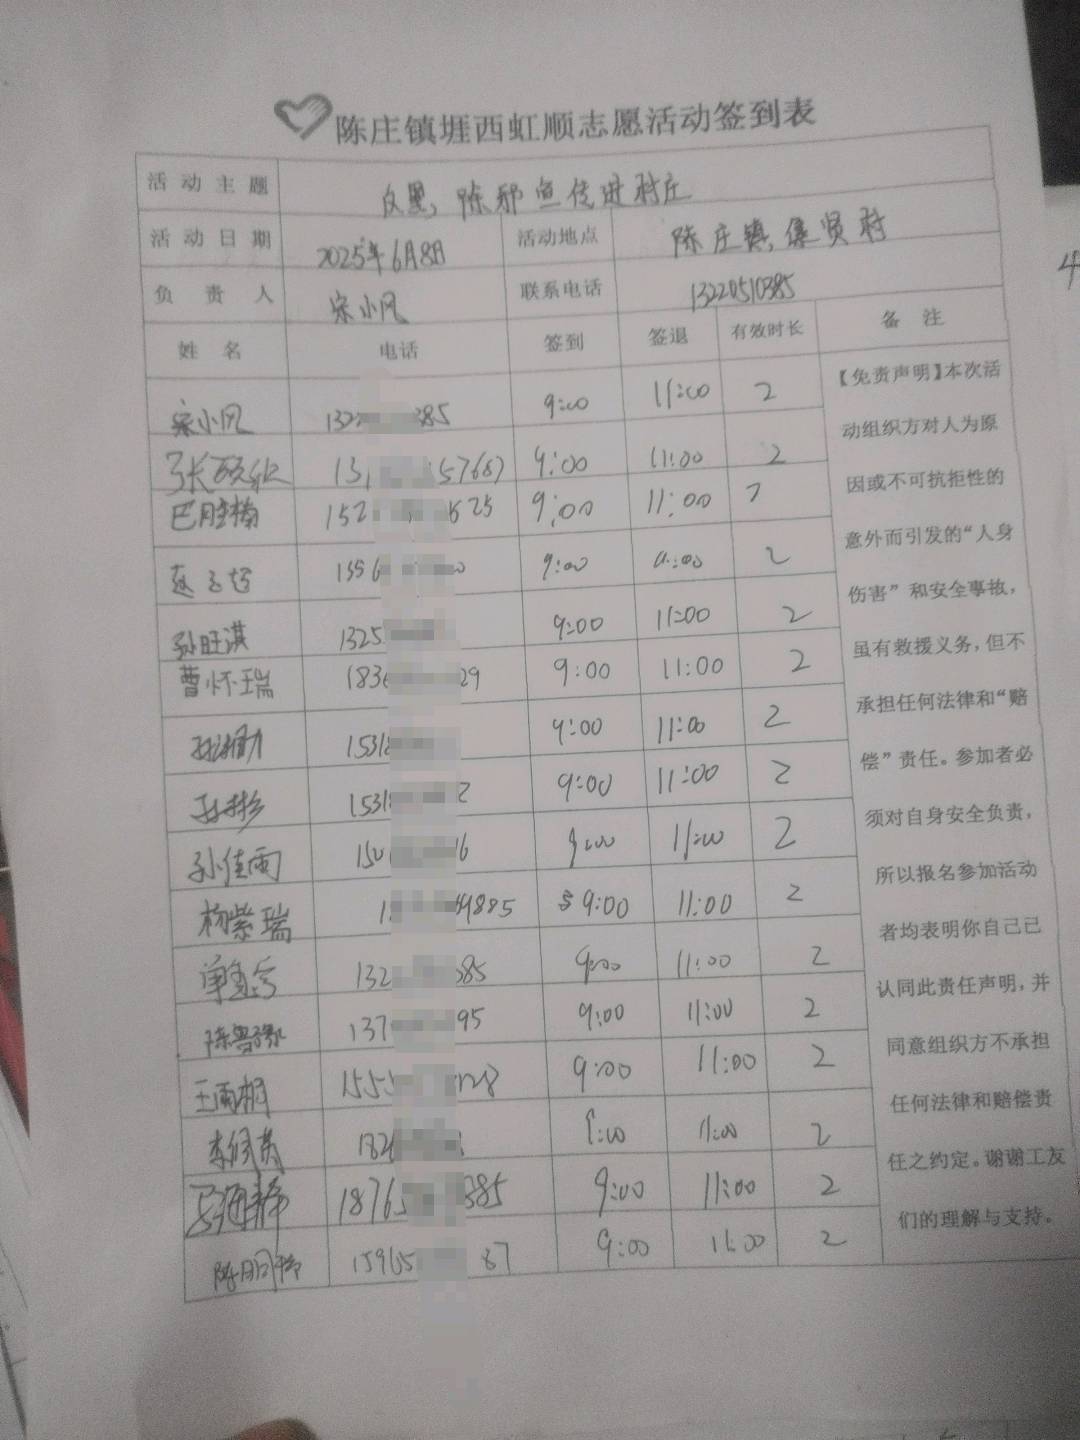 陈庄镇堐西虹顺志愿活动签到表
活动主题 反黑,除邪宣传进村庄
活动日期 2025年6月8日 活动地点 陈庄镇,集贤村
负责人 宋小风 联系电话 13220510385
姓名 电话 签到 签退 有效时长 备注
宋小风 132 385 9:00 11:00 2
张 13 57687 9:00 11:00 2
巴胜楠 152 525 9:00 11:00 2
赵 1596 0 9:00 11:00 2
孙旺淇 1325 9:00 11:00 2
曹怀瑞 1836 29 9:00 11:00 2
1531 9:00 11:00 2
孙彬 1531 2 9:00 11:00 2
孙佳雨 150 16 9:00 11:00 2
杨紫瑞 1 9885 9:00 11:00 2
132 385 9:00 11:00 2
陈鲁豫 137 95 9:00 11:00 2
王雨桐 1555 128 9:00 11:00 2
182 9:00 11:00 2
马海静 18765 385 9:00 11:00 2
陈 15965 87 9:00 11:00 2
【免责声明】本次活
动组织方对人为原
因或不可抗拒性的
意外而引发的“人身
伤害”和安全事故,
虽有救援义务,但不
承担任何法律和“赔
偿”责任。参加者必
须对自身安全负责,
所以报名参加活动
者均表明你自己已
认同此责任声明,并
同意组织方不承担
任何法律和赔偿责
任之约定。谢谢工友
们的理解与支持。